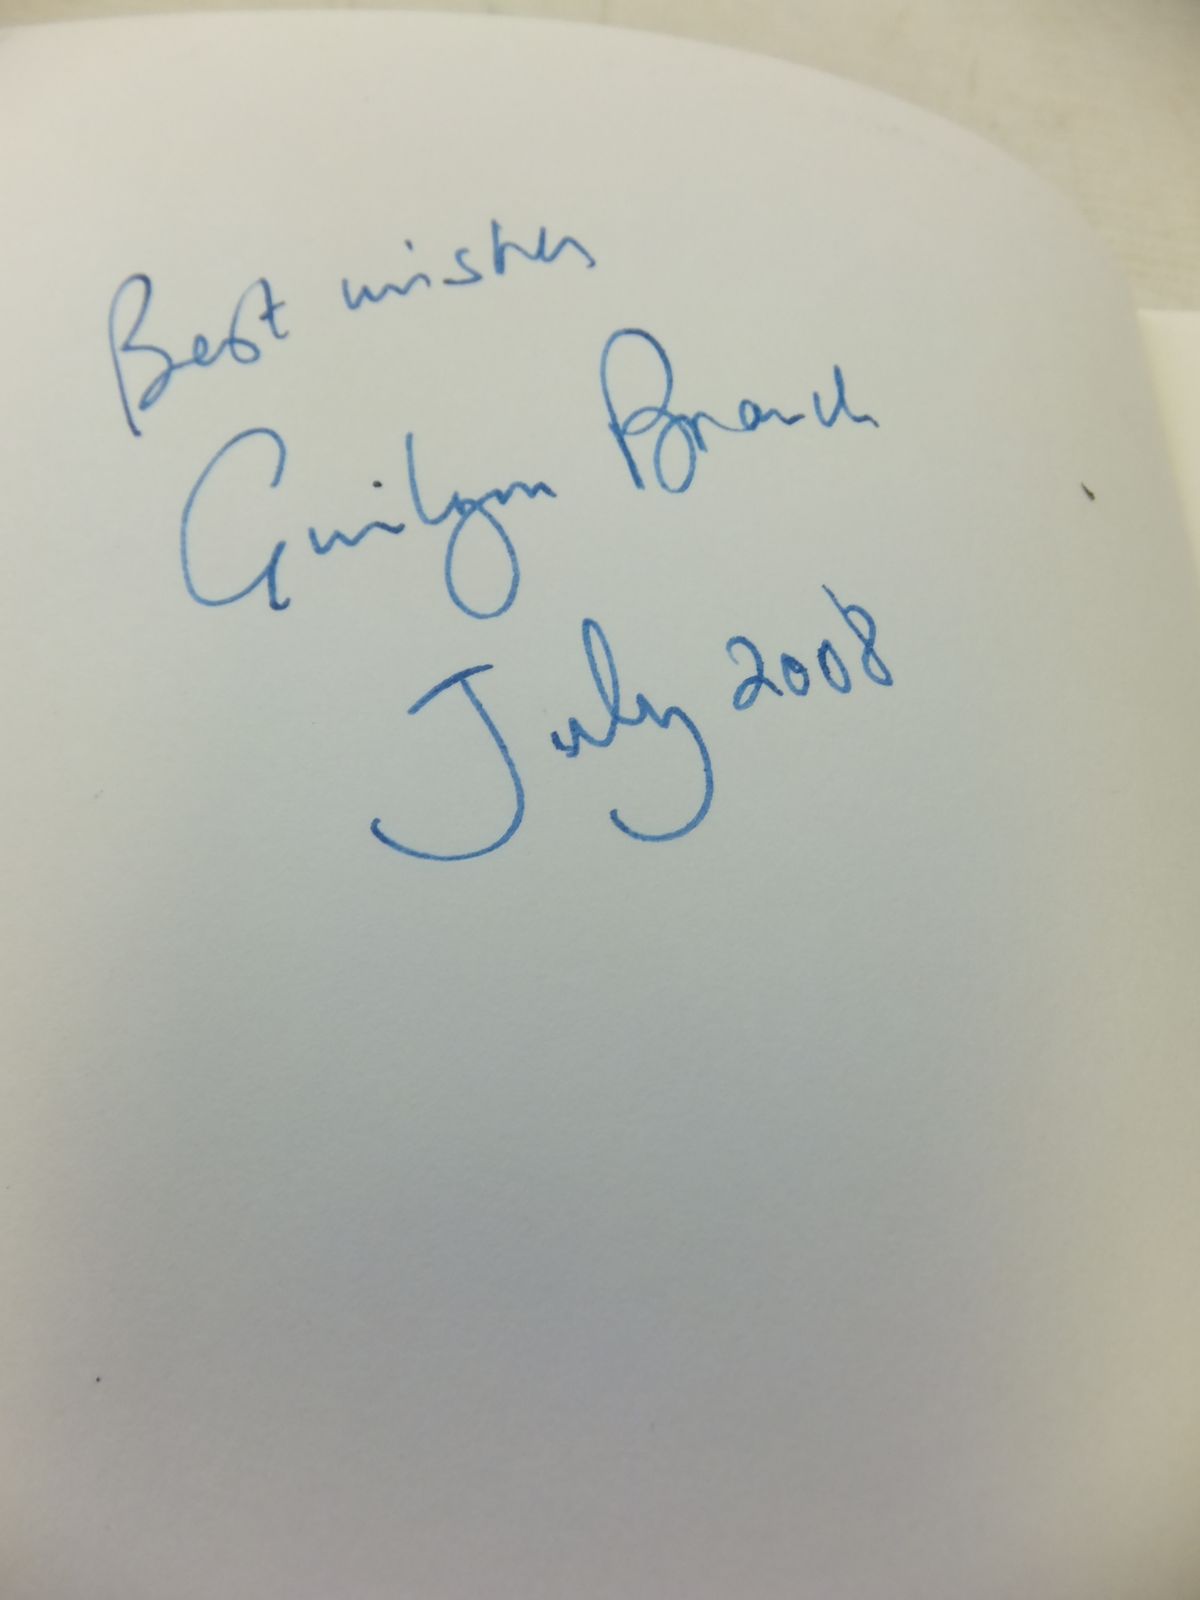 Best wishes
Gwilym Branch
July 2008